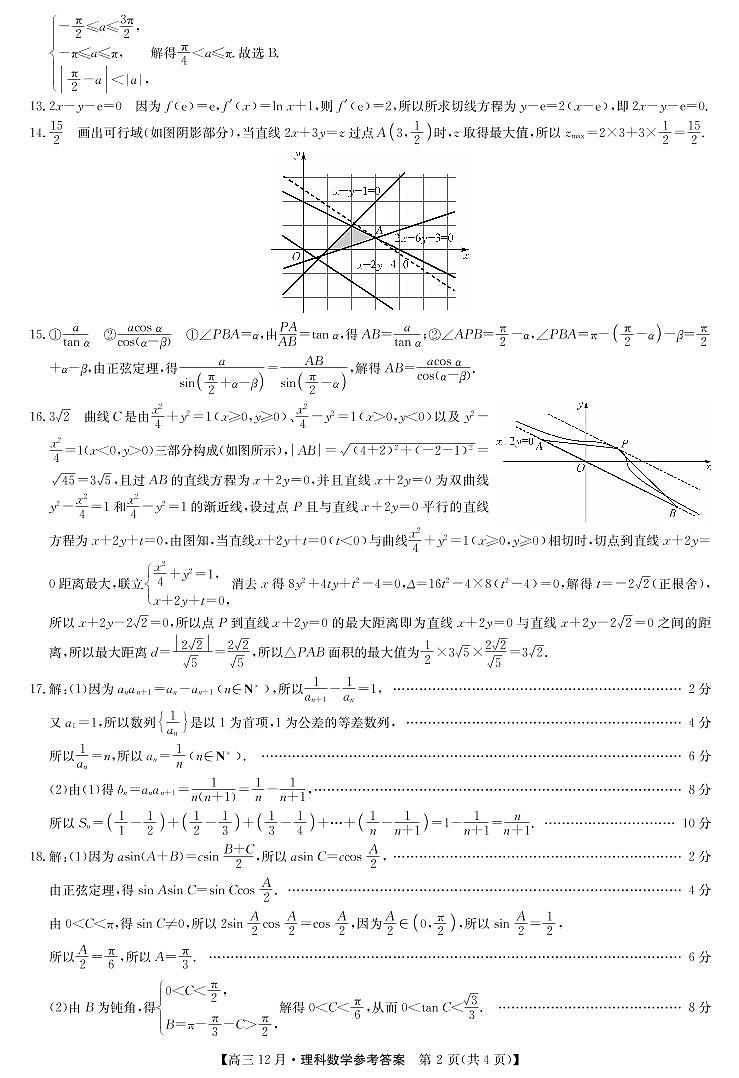 { -π/2≤a≤3π/2,
-π≤a≤π, 解得π/4<a≤π.故选 B.
|π/2-a|<|a|,
13. 2x-y-e=0 因为 f(e)=e,f′(x)=ln x+1,则 f′(e)=2,所以所求切线方程为 y-e=2(x-e),即 2x-y-e=0.
14. 15/2 画出可行域(如图阴影部分),当直线 2x+3y=z 过点 A(3,1/2)时,z 取得最大值,所以 zmax=2×3+3×1/2=15/2.
y
x-y-1=0
A
2x-6y-3=0
O
x
15. ①a/tan α ②acos α/cos(α-β) ①∠PBA=α,由PA/AB=tan α,得 AB=a/tan α;②∠APB=π/2-α,∠PBA=π-(π/2-α)-β=π/2
+α-β,由正弦定理,得a/sin(π/2+α-β)=AB/sin(π/2-α),解得 AB=acos α/cos(α-β).
16. 3√2 曲线 C 是由x²/4+y²=1(x≥0,y≥0)、x²/4-y²=1(x>0,y<0)以及 y²-
x²/4=1(x<0,y>0)三部分构成(如图所示),|AB|=√((4+2)²+(-2-1)²)=
√45=3√5,且过 AB 的直线方程为 x+2y=0,并且直线 x+2y=0 为双曲线
y²-x²/4=1 和x²/4-y²=1 的渐近线,设过点 P 且与直线 x+2y=0 平行的直线
y
x+2y=0
A
P
O
x
B
方程为 x+2y+t=0,由图知,当直线x+2y+t=0(t<0)与曲线x²/4+y²=1(x≥0,y≥0)相切时,切点到直线 x+2y=
0 距离最大,联立{x²/4+y²=1, x+2y+t=0, 消去 x 得 8y²+4ty+t²-4=0,Δ=16t²-4×8(t²-4)=0,解得 t=-2√2(正根舍),
所以 x+2y-2√2=0,所以点 P 到直线 x+2y=0 的最大距离即为直线 x+2y=0 与直线 x+2y-2√2=0 之间的距
离,所以最大距离 d=|2√2|/√5=2√2/√5,所以△PAB 面积的最大值为1/2×3√5×2√2/√5=3√2.
17. 解:(1)因为 aₙaₙ₊₁=aₙ-aₙ₊₁(n∈N*),所以1/aₙ₊₁-1/aₙ=1, …… 2 分
又 a₁=1,所以数列{1/aₙ}是以 1 为首项,1 为公差的等差数列, …… 4 分
所以1/aₙ=n,所以 aₙ=1/n(n∈N*). …… 6 分
(2)由(1)得 bₙ=aₙaₙ₊₁=1/n(n+1)=1/n-1/n+1, …… 8 分
所以 Sₙ=(1/1-1/2)+(1/2-1/3)+(1/3-1/4)+…+(1/n-1/n+1)=1-1/n+1=n/n+1. …… 10 分
18. 解:(1)因为 asin(A+B)=csin B+C/2,所以 asin C=ccos A/2, …… 2 分
由正弦定理,得 sin Asin C=sin Ccos A/2. …… 4 分
由 0<C<π,得 sin C≠0,所以 2sin A/2 cos A/2=cos A/2,因为A/2∈(0,π/2),所以 sin A/2=1/2,
所以A/2=π/6,所以 A=π/3. …… 6 分
(2)由 B 为钝角,得{0<C<π/2, B=π-π/3-C>π/2, 解得 0<C<π/6,从而 0<tan C<√3/3. …… 8 分
【高三 12 月·理科数学参考答案 第 2 页(共 4 页)】